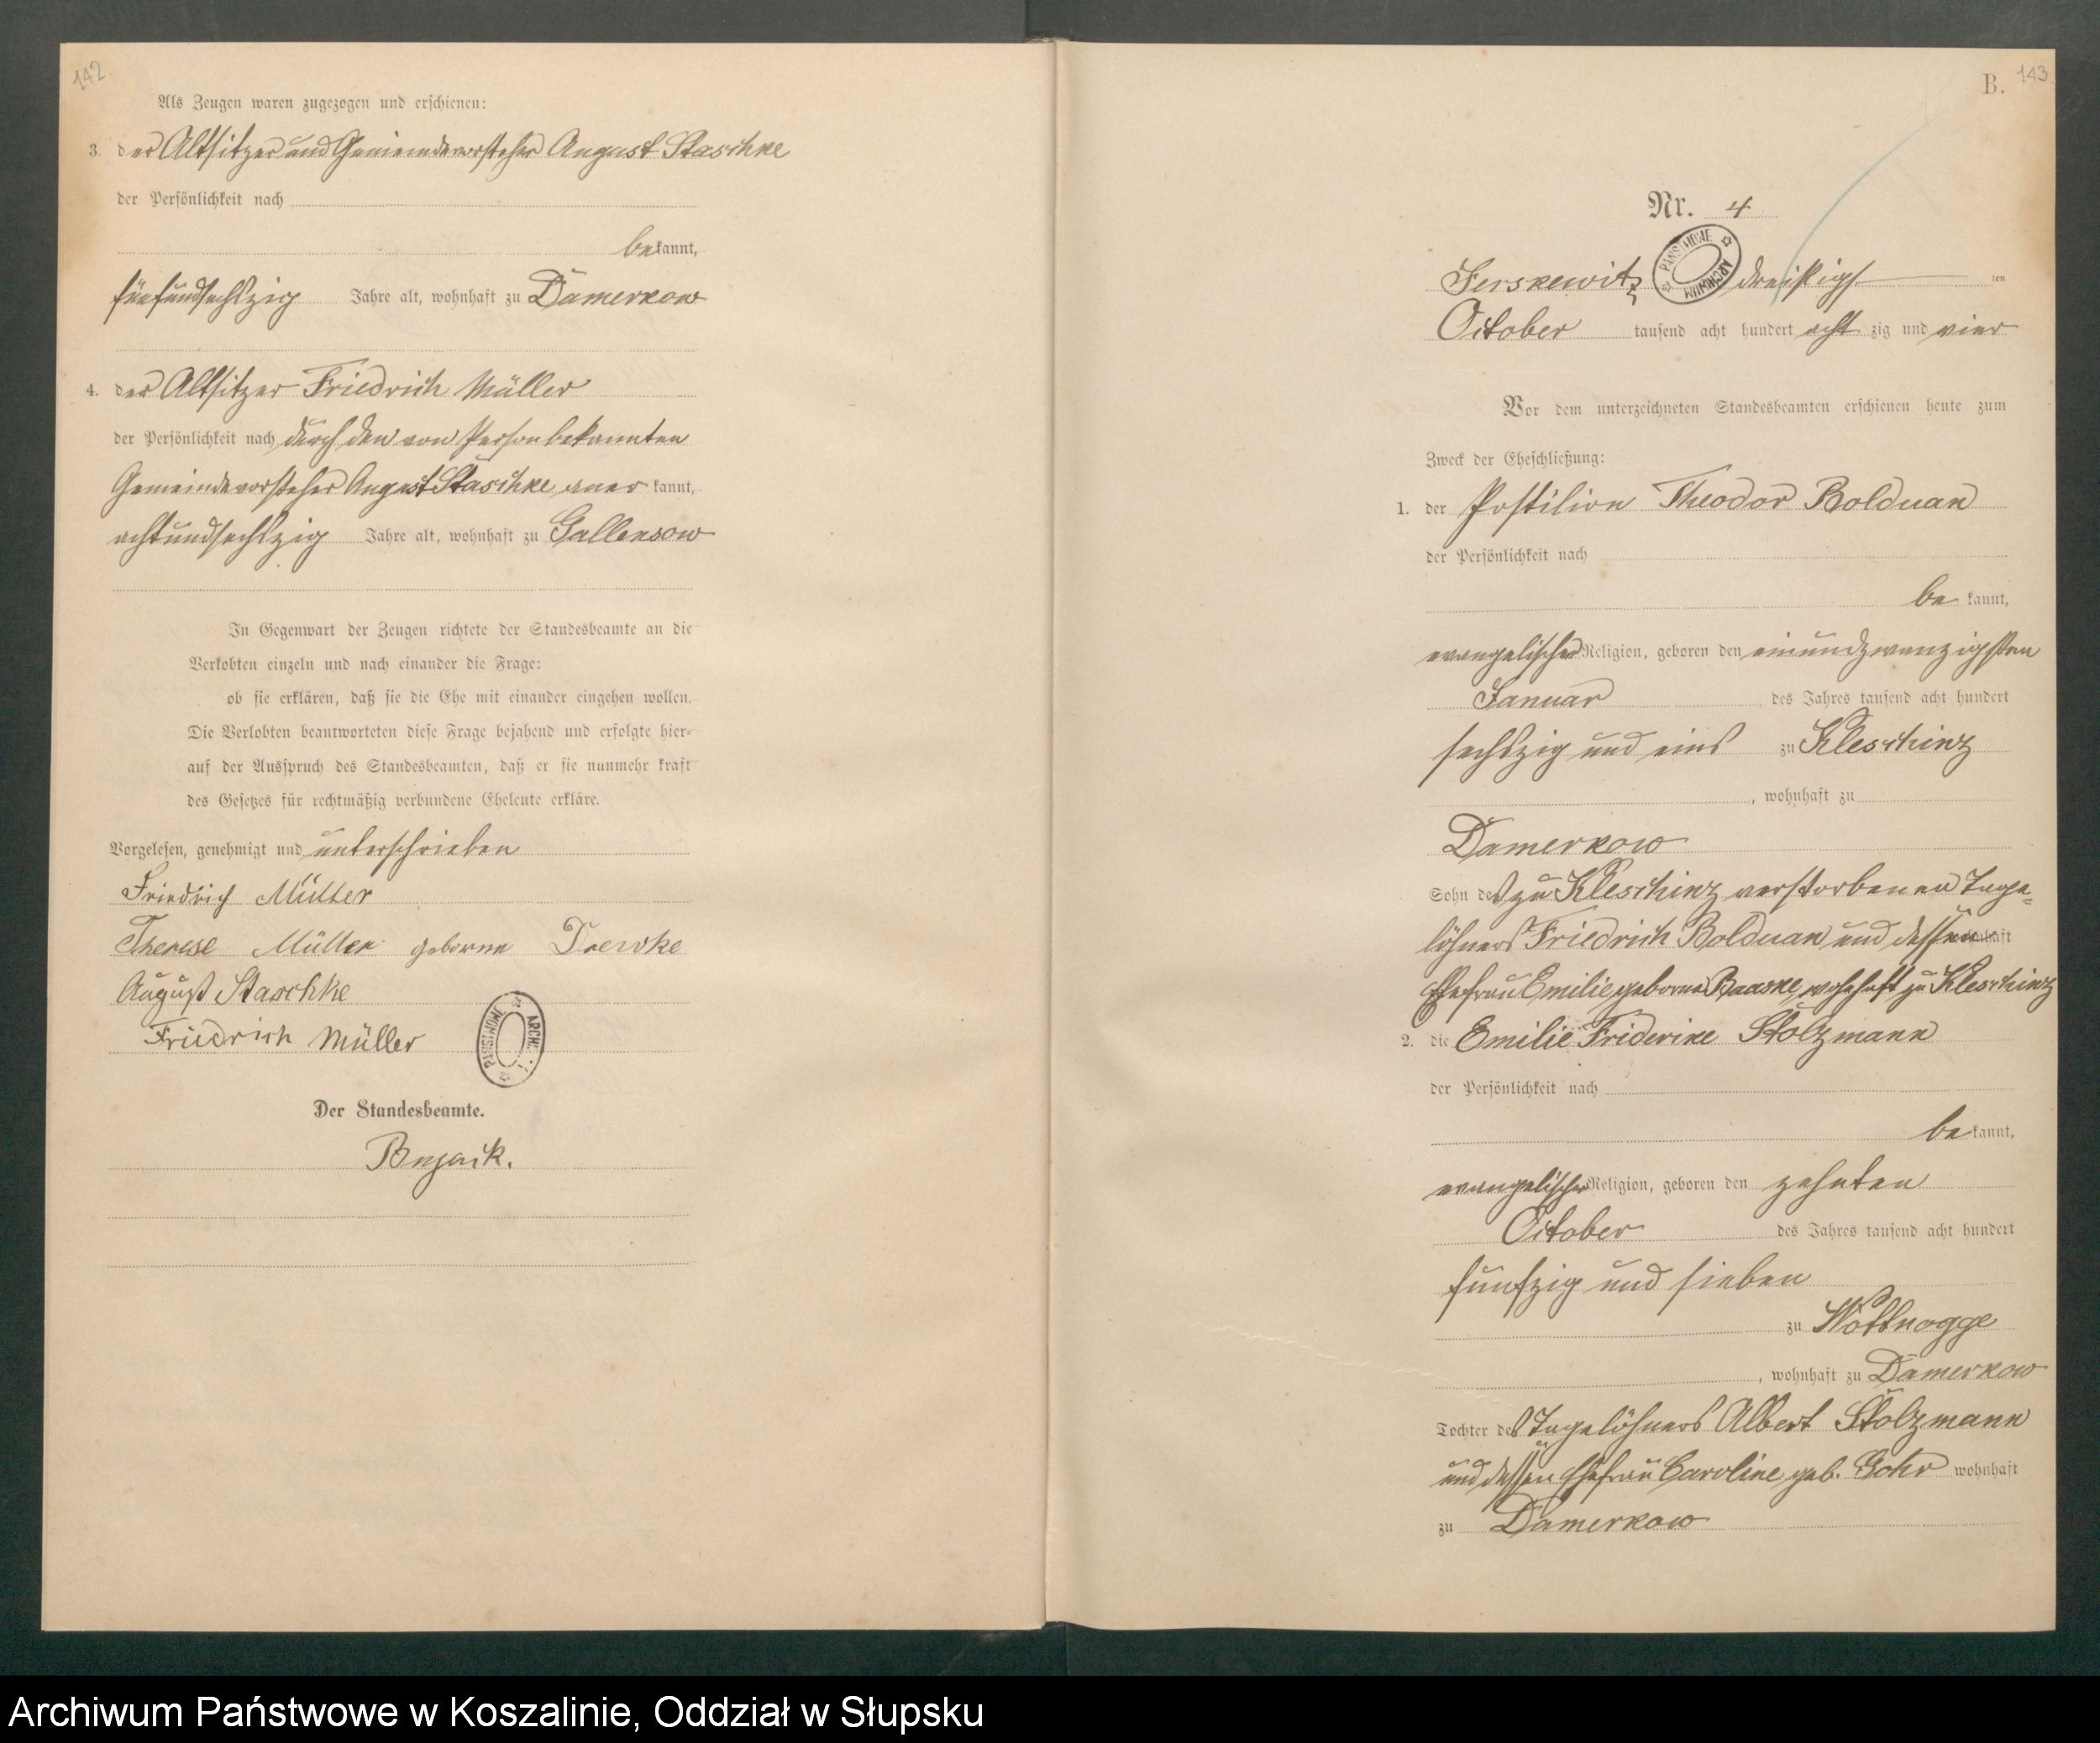 142.
Als Zeugen waren zugezogen und erschienen:
3. der Altsitzer und Gemeindevorsteher August Staschke
der Persönlichkeit nach
bekannt,
fünfundsechszig Jahre alt, wohnhaft zu Damerkow
4. der Altsitzer Friedrich Müller
der Persönlichkeit nach durch den von Person bekannten
Gemeindevorsteher August Staschke, aner kannt,
achtundsechszig Jahre alt, wohnhaft zu Gallensow
In Gegenwart der Zeugen richtete der Standesbeamte an die
Verlobten einzeln und nach einander die Frage:
ob sie erklären, daß sie die Ehe mit einander eingehen wollen.
Die Verlobten beantworteten diese Frage bejahend und erfolgte hier-
auf der Ausspruch des Standesbeamten, daß er sie nunmehr kraft
des Gesetzes für rechtmäßig verbundene Eheleute erkläre.
Vorgelesen, genehmigt und unterschrieben
Friedrich Müller
Therese Müller geborne
August Staschke
Friedrich Müller
Der Standesbeamte.
B. 143
Nr. 4
Jerskewitz dreißigsten
October tausend acht hundert acht zig und vier
Vor dem unterzeichneten Standesbeamten erschienen heute zum
Zweck der Eheschließung:
1. der Postilion Theodor Bolduan
der Persönlichkeit nach
be kannt,
evangelischer Religion, geboren den einundzwanzigsten
Januar des Jahres tausend acht hundert
sechszig und eins zu Kleschinz
, wohnhaft zu
Damerkow
Sohn des zu Kleschinz verstorbenen Tage=
löhners Friedrich Bolduan und dessen
Ehefrau Emilie geborne Baaske, wohnhaft zu Kleschinz
2. die Emilie Friderike Stolzmann
der Persönlichkeit nach
be kannt,
evangelischer Religion, geboren den zehnten
October des Jahres tausend acht hundert
fünfzig und sieben
zu Wottnogge
, wohnhaft zu Damerkow
Tochter des Tagelöhners Albert Stolzmann
und dessen Ehefrau Caroline geb. Gohr wohnhaft
zu Damerkow
Archiwum Państwowe w Koszalinie, Oddział w Słupsku